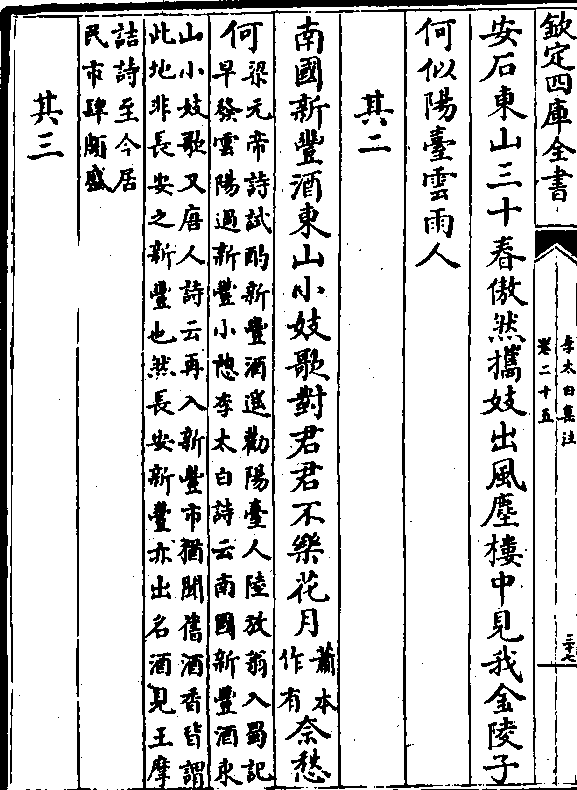 欽定四庫全書
李太白集注
卷二十五
二十七
安石東山三十春傲然攜妓出風塵樓中見我金陵子
何似陽臺雲雨人
其二
南國新豐酒東山小妓歌對君君不樂花月蕭本作有奈愁
何梁元帝詩試酌新豐酒遥勸陽臺人陸放翁入蜀記
早發雲陽過新豐小憩李太白詩云南國新豐酒東
山小妓歌又唐人詩云再入新豐市猶聞舊酒香皆謂
此地非長安之新豐也然長安新豐亦出名酒見王摩
詰詩至今居
民市肆頗盛
其三